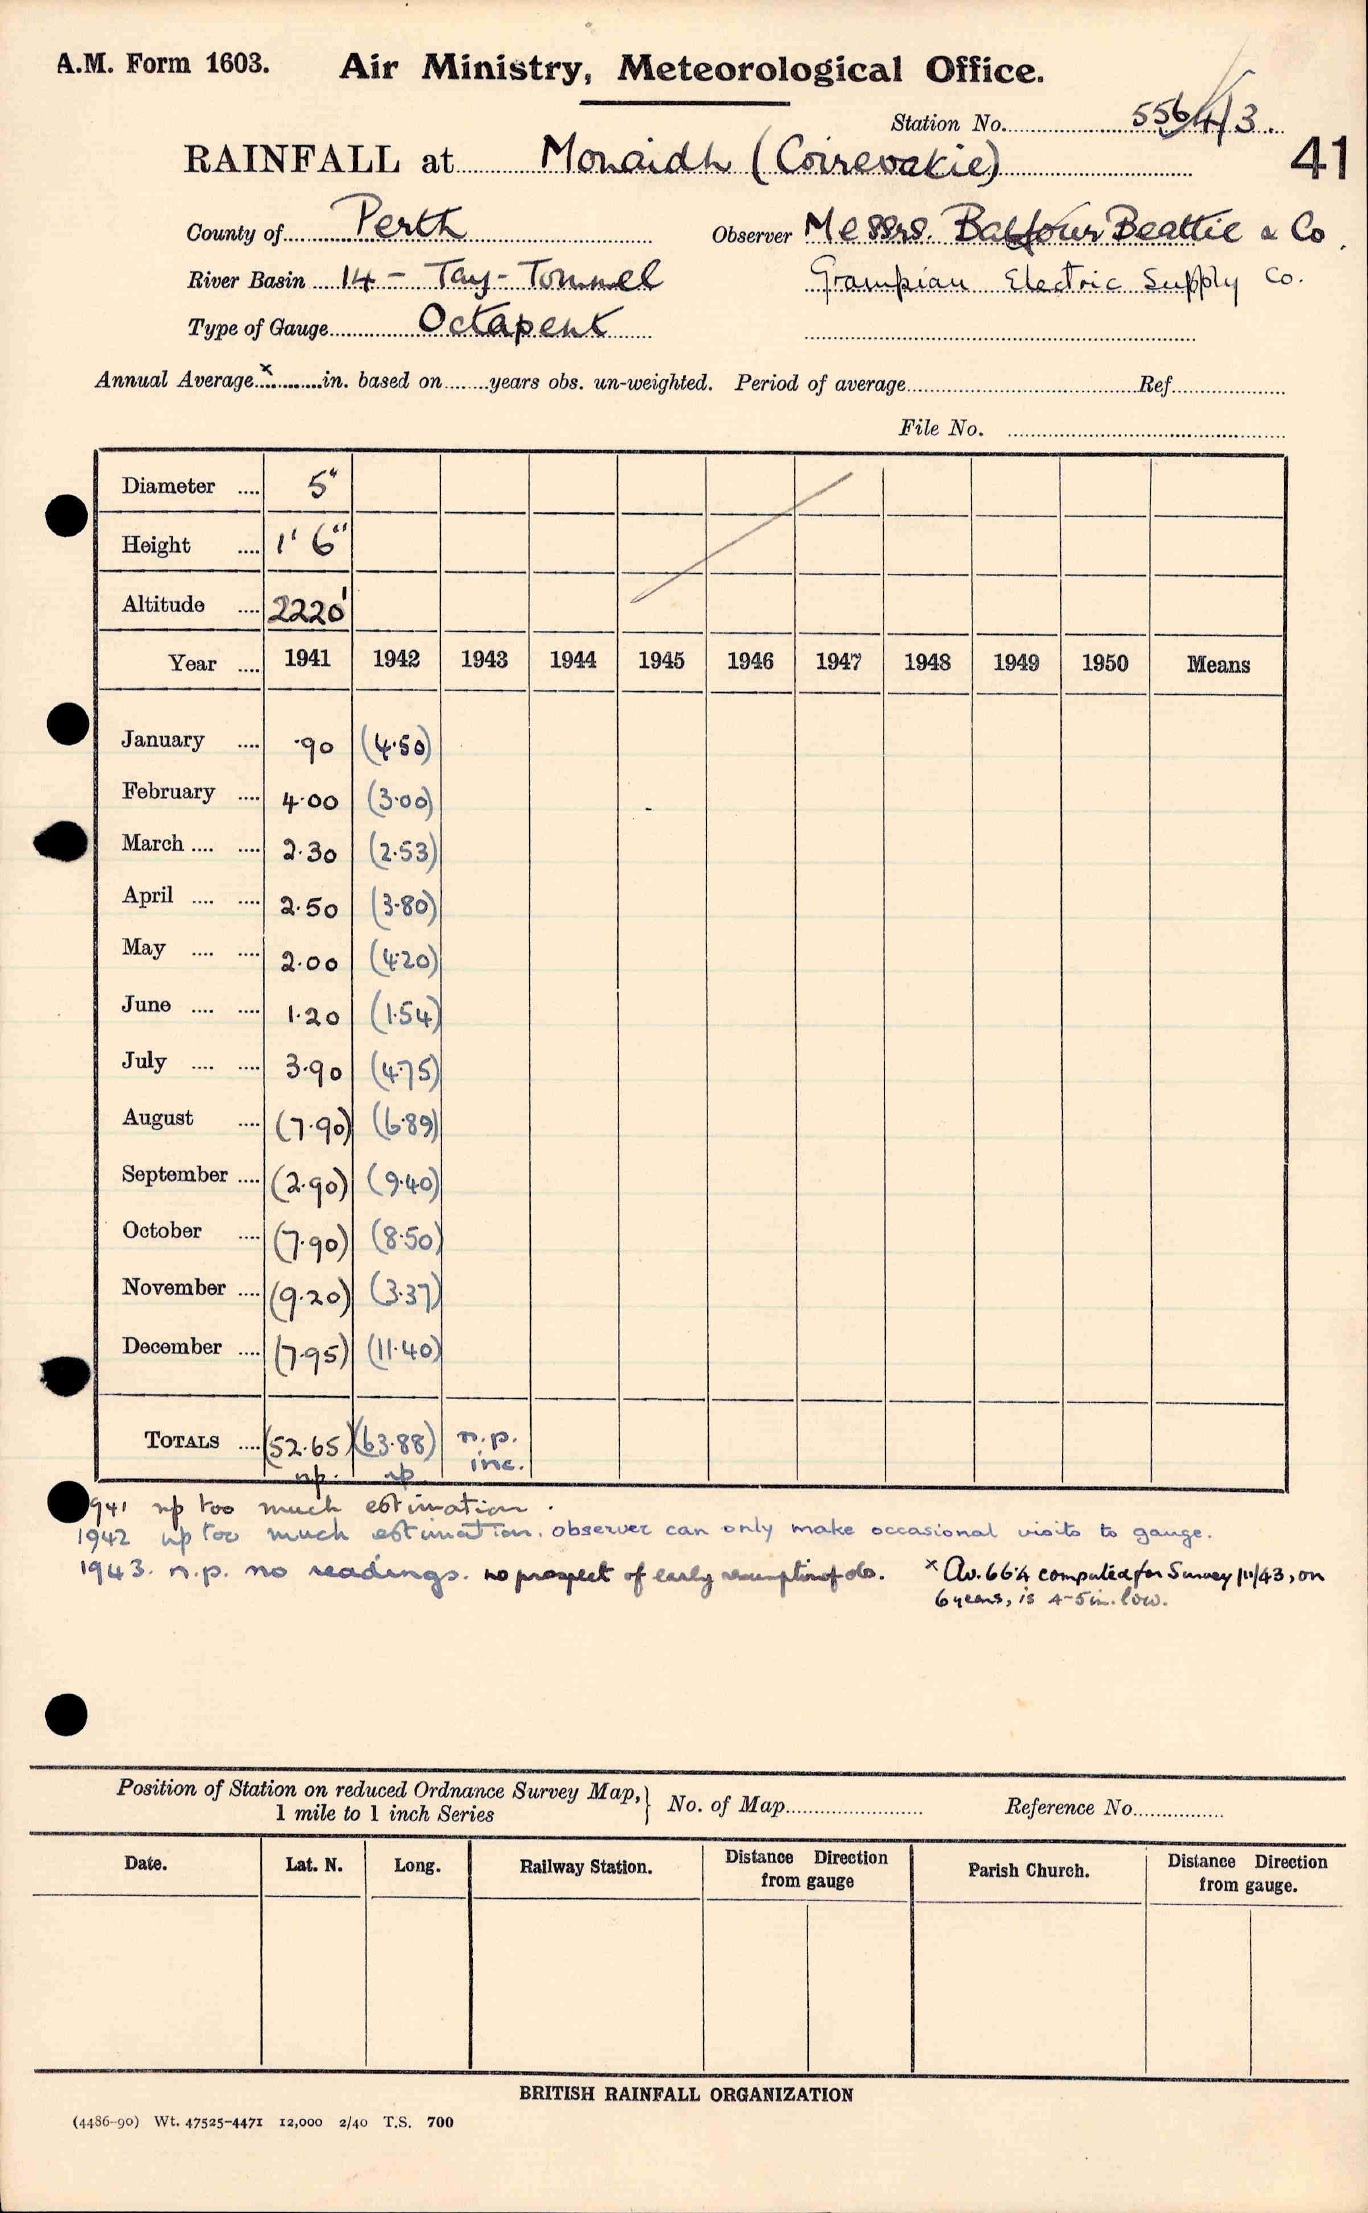 A.M. Form 1603. Air Ministry, Meteorological Office.
Station No. 5564/3.
RAINFALL at Monaidh (Coirevakie) 41
County of Perth Observer Messrs. Balfour Beattie & Co.
River Basin 14 - Tay - Tummel Grampian Electric Supply Co.
Type of Gauge Octapent
Annual Average x in. based on years obs. un-weighted. Period of average Ref.
File No.
Diameter .... 5"
Height .... 1' 6"
Altitude .... 2220'
Year .... 1941 1942 1943 1944 1945 1946 1947 1948 1949 1950 Means
January .... ·90 (4·50)
February .... 4·00 (3·00)
March .... .... 2·30 (2·53)
April .... .... 2·50 (3·80)
May .... .... 2·00 (4·20)
June .... .... 1·20 (1·54)
July .... .... 3·90 (4·75)
August .... (7·90) (6·89)
September .... (2·90) (9·40)
October .... (7·90) (8·50)
November .... (9·20) (3·37)
December .... (7·95) (11·40)
TOTALS .... (52·65) (63·88) n.p.
np. np inc.
941 np too much estimation.
1942 np too much estimation. observer can only make occasional visits to gauge.
1943. n.p. no readings. no prospect of early resumption of do. x Av. 66·4 computed for Survey 11/43, on
6 years, is 4-5 in. low.
Position of Station on reduced Ordnance Survey Map,} No. of Map Reference No.
1 mile to 1 inch Series
Date. Lat. N. Long. Railway Station. Distance Direction Parish Church. Distance Direction
from gauge from gauge.
BRITISH RAINFALL ORGANIZATION
(4486-90) Wt. 47525-4471 12,000 2/40 T.S. 700